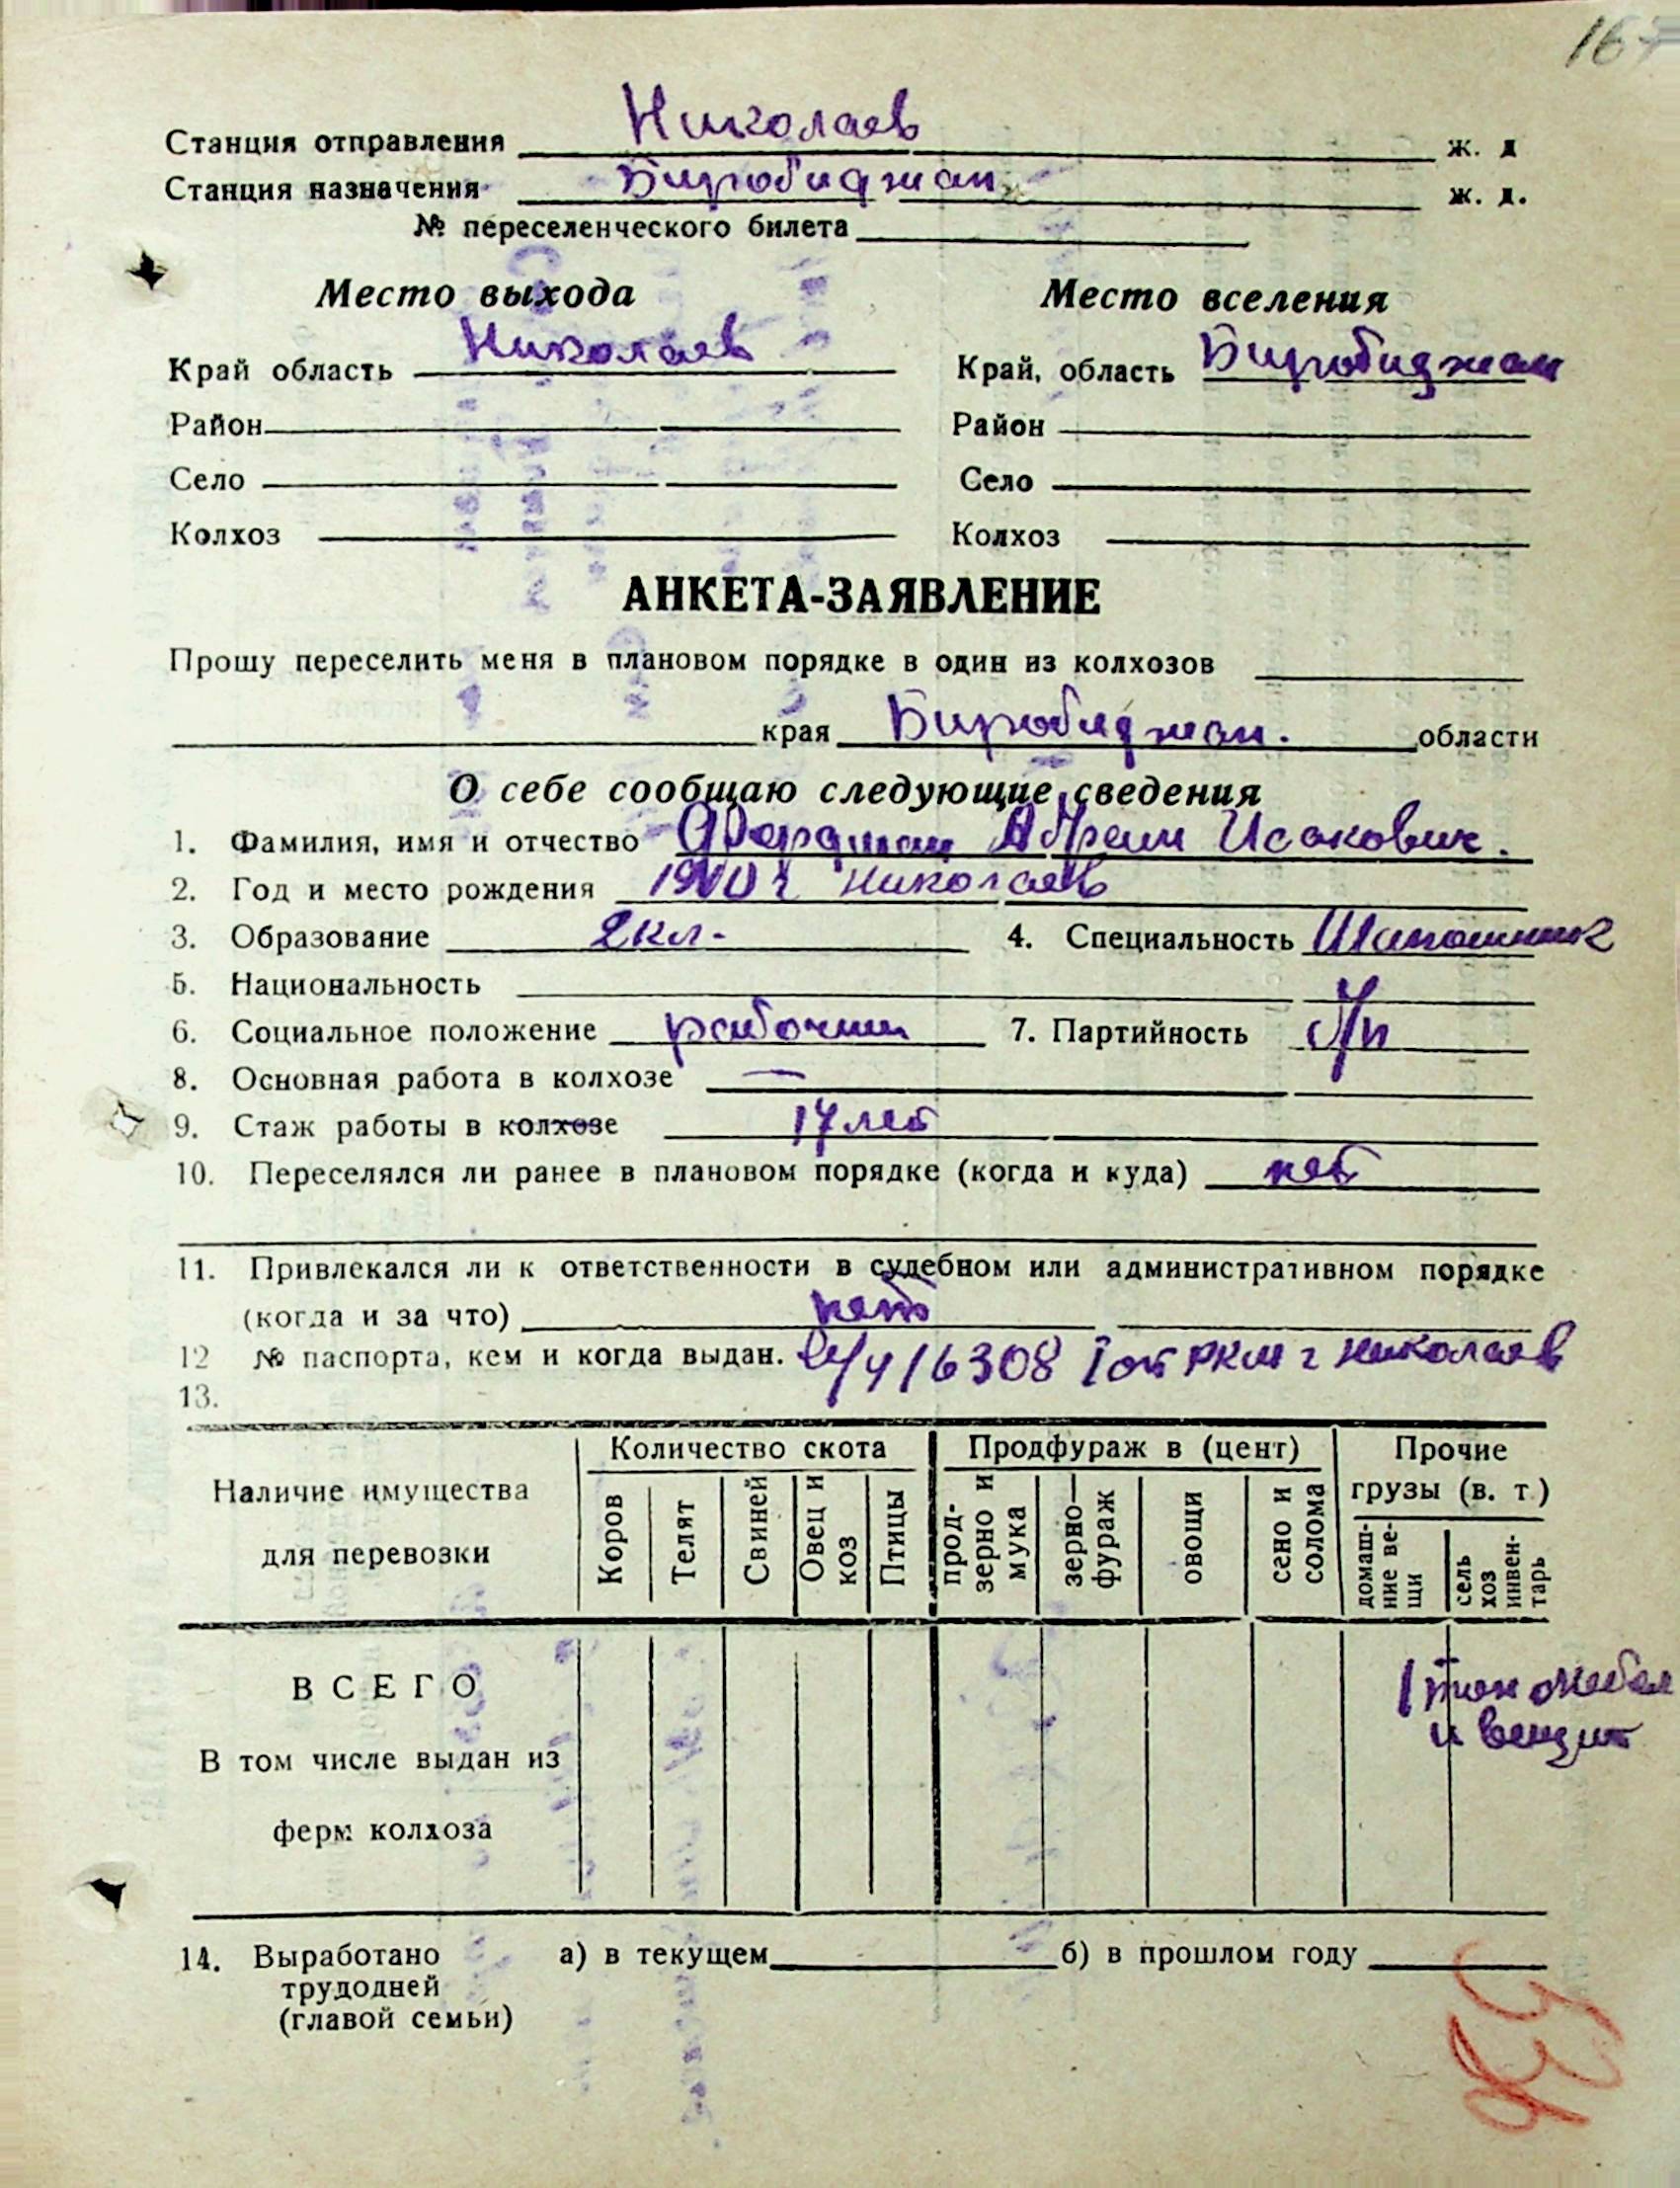 167
Станция отправления Николаев ж. д
Станция назначения Биробиджан ж. д.
№ переселенческого билета
Место выхода Место вселения
Край область Николаев Край, область Биробиджан
Район Район
Село Село
Колхоз Колхоз
АНКЕТА-ЗАЯВЛЕНИЕ
Прошу переселить меня в плановом порядке в один из колхозов
края Биробиджан. области
О себе сообщаю следующие сведения
1. Фамилия, имя и отчество Абрам Исакович.
2. Год и место рождения Николаев
3. Образование 2 кл. 4. Специальность
5. Национальность
6. Социальное положение рабочий 7. Партийность б/п
8. Основная работа в колхозе —
9. Стаж работы в колхозе 17 лет
10. Переселялся ли ранее в плановом порядке (когда и куда) нет
11. Привлекался ли к ответственности в судебном или административном порядке
(когда и за что) нет
12 № паспорта, кем и когда выдан. 16308 I от РКМ г Николаев
13.
Наличие имущества для перевозки Количество скота Продфураж в (цент) Прочие грузы (в. т.)
Коров Телят Свиней Овец и коз Птицы прод-зерно и мука зерно-фураж овощи сено и солома домаш-ние ве-щи сель хоз инвен-тарь
ВСЕГО 1 тон мебел
и вещит
В том числе выдан из
ферм колхоза
14. Выработано а) в текущем б) в прошлом году
трудодней
(главой семьи)
536